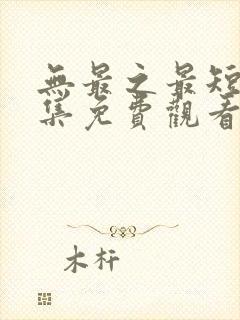 無最之最短
集免費觀看
木杆